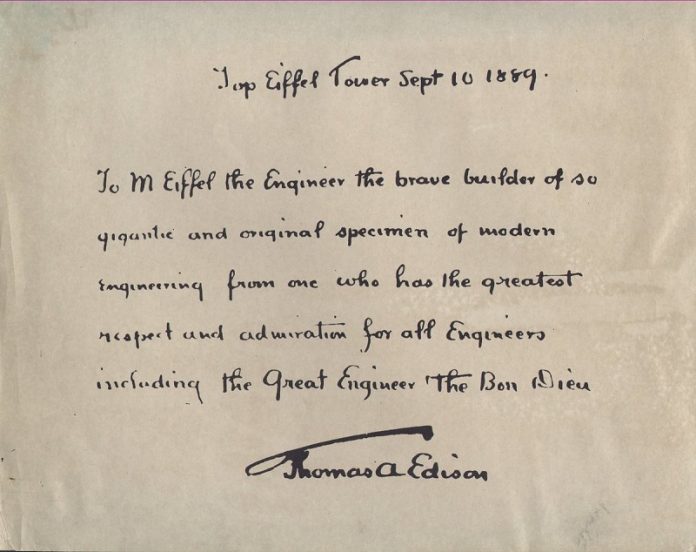 Top Eiffel Tower Sept 10 1889.
To M Eiffel the Engineer the brave builder of so
gigantic and original specimen of modern
Engineering from one who has the greatest
respect and admiration for all Engineers
including the Great Engineer The Bon Dieu
Thomas A Edison